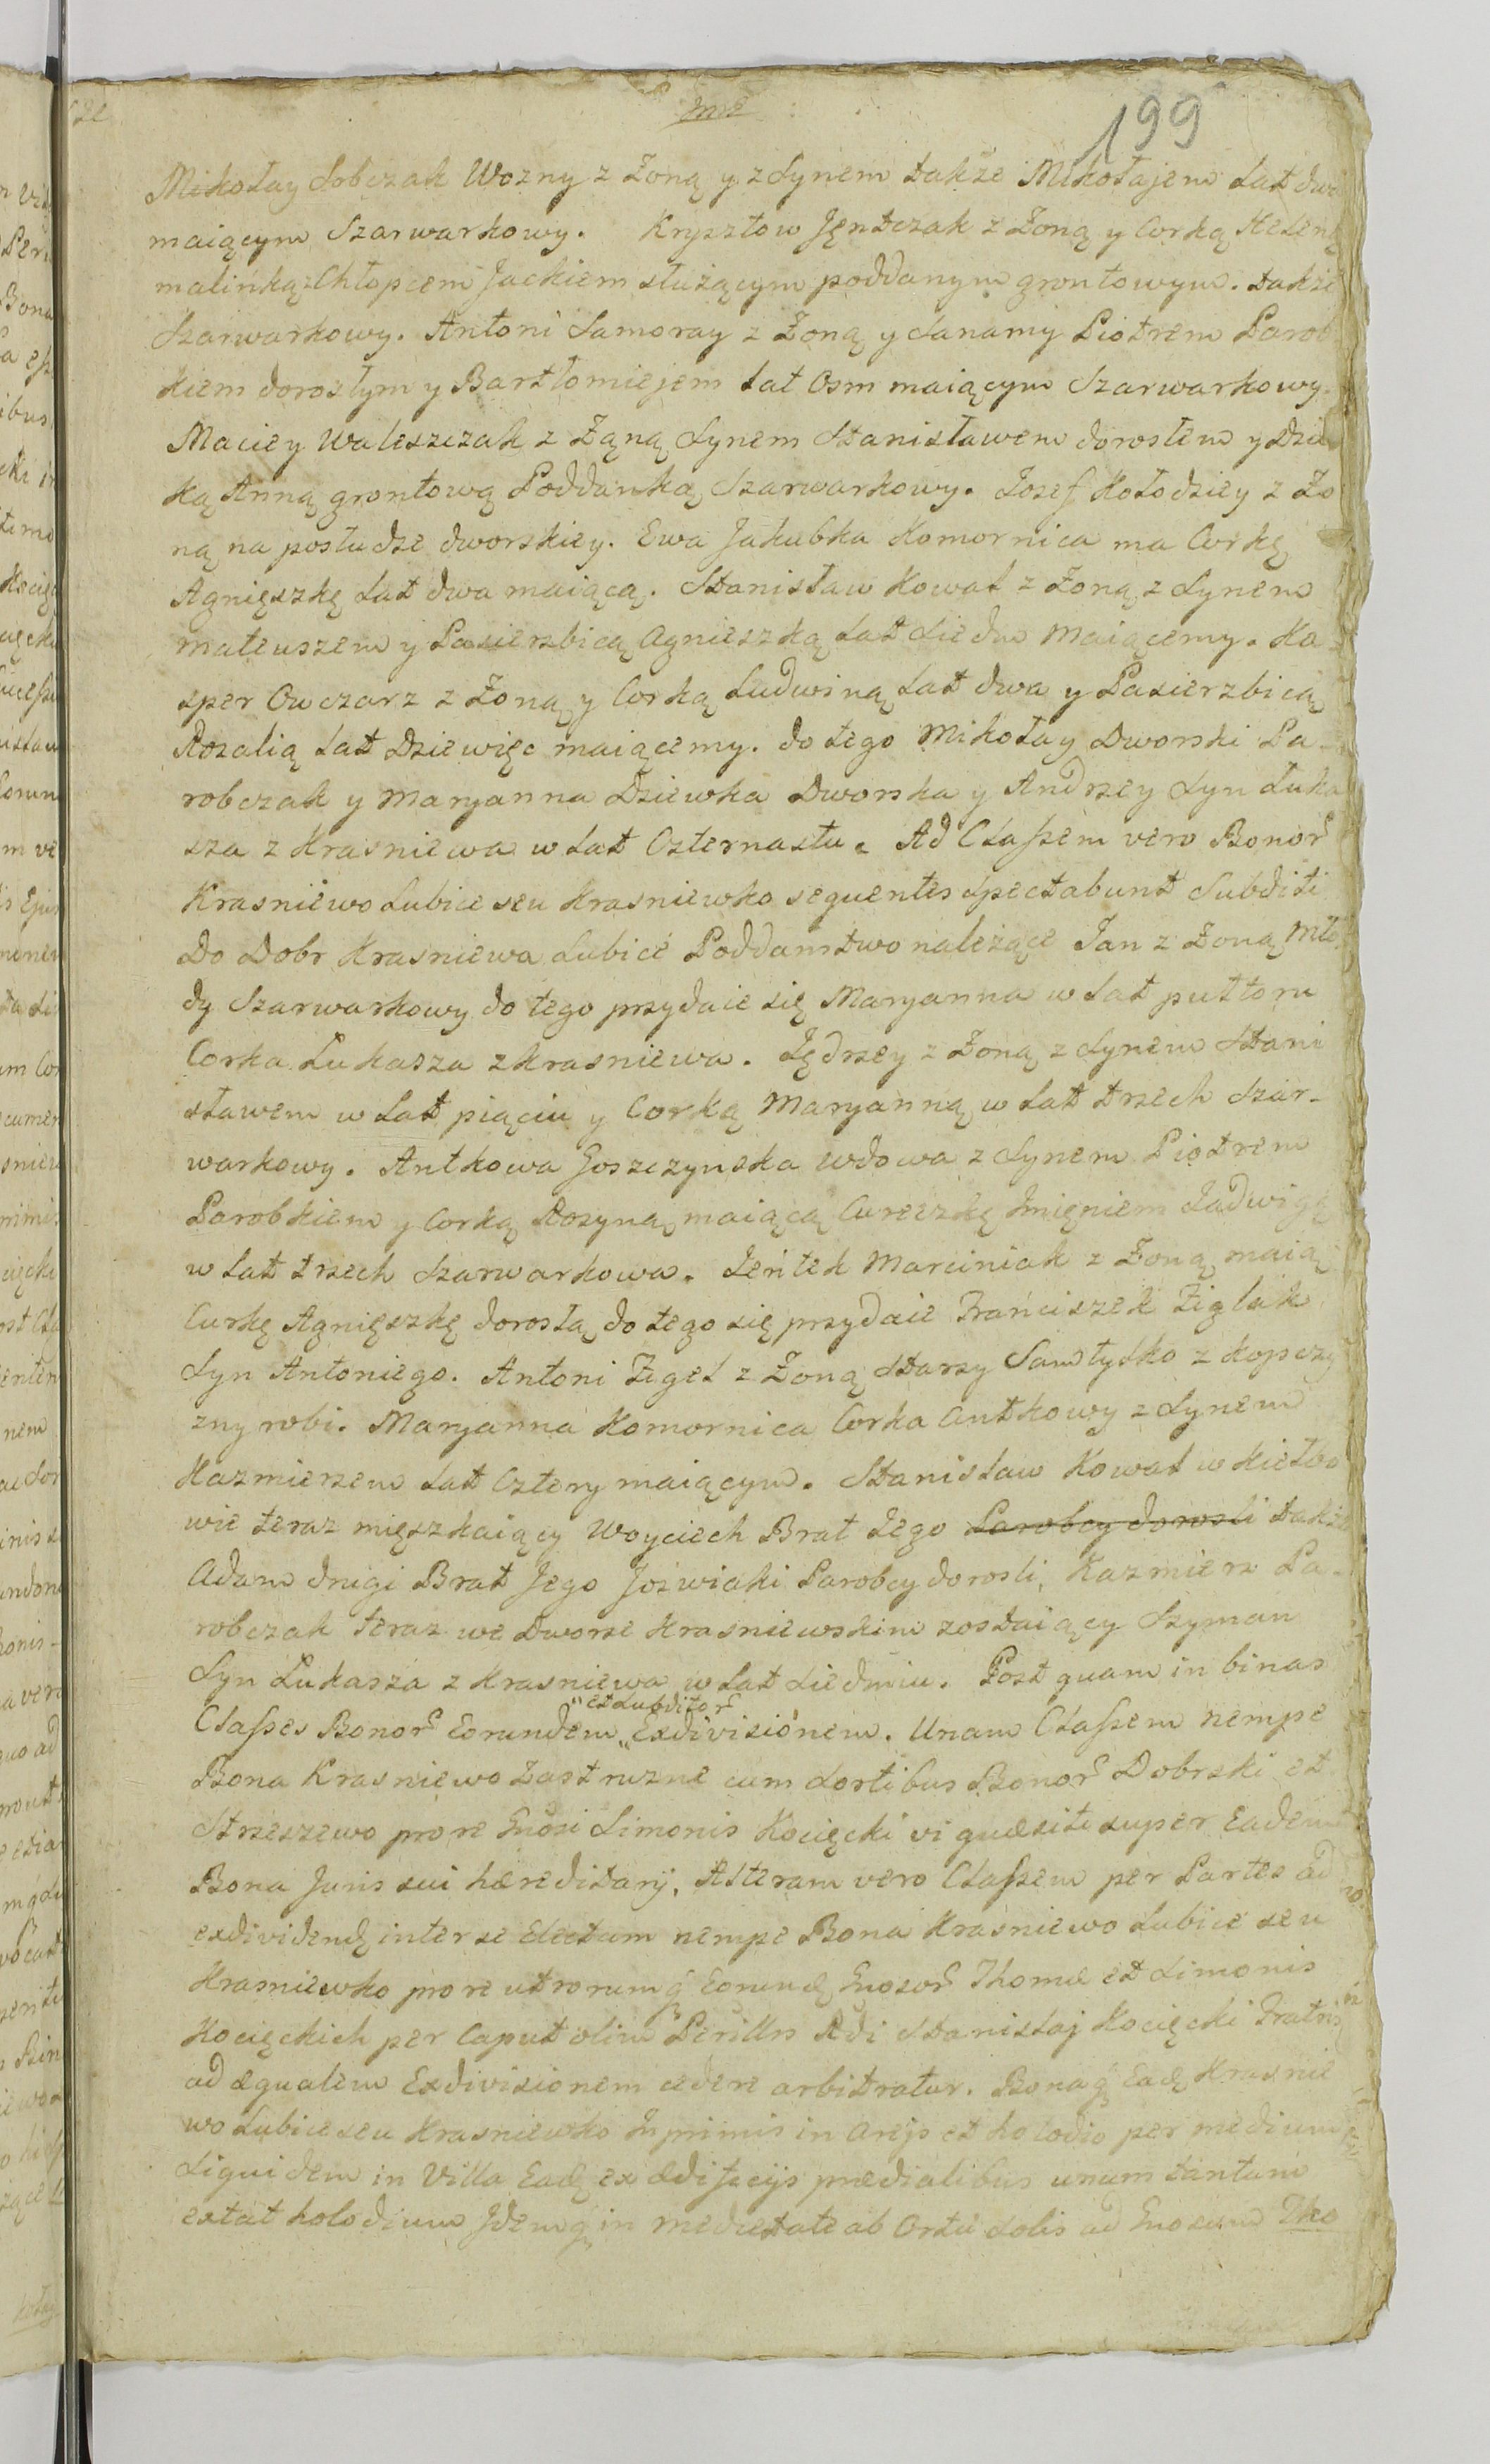 199
Mikołay Sobczak Wozny z Żoną y z Synem także Mikołajem Lat dwa
maiącym Szarwarkowy. Krysztow Jęntczak z Żoną y Corką Heleną
malińką z Chłopcem Jackiem służącym poddanym grontowym. także
Szarwarkowy. Antoni Samoray z Żoną y Sanamy Piotrem Parob
kiem dorosłym y Bartłomiejem Lat Osm maiącym Szarwarkowy.
Maciey Waleszczak z Żąną Synem Stanisławem dorosłem y Dzie
ką Anną grontową Poddanką Szarwarkowy. Jozef Kołodziey z Żo
ną na posłudze dworskiey. Ewa Jakubka Komornica ma Corkę
Agnięszkę Lat dwa maiącą. Stanisław Kowal z Żoną z Synem
Mateuszem y Pasierzbicą Agnieszką Lat Siedm Maiącemy. Ka
sper Owczarz z Żoną y Corką Ludwiną Lat dwa y Pasierzbicą
Rozalią Lat Dziewięc maiącemy. do tego Mikołay Dworski Pa-
robczak y Maryanna Dziewka Dworska y Andrzey Syn Łuka
sza z Krasniewa w Lat Czternastu. Ad Classem vero Bonor
Krasniewo Lubice seu Krasniewko sequentes Spectabunt Subditi
Do Dobr Krasniewa Lubice Poddanstwo należące Jan z Żoną Mło
dy Szarwarkowy do tego przydaie się Maryanna w Lat puttoru
Corka Łukasza z Krasniewa. Jędrzey z Żoną z Synem Stani
sławem w Lat piąciu y Corką Maryanną w Lat trzech Szar-
warkowy. Antkowa Goszczynska wdowa z Synem Piotrem
Parobkiem y Corką Rozyną maiącą Cureczkę Jmięniem Jadwigę
w Lat trzech Szarwarkowa. Jeńtek Marciniak z Żoną maią
Curkę Agnięszkę dorosłą do tego się przydaie Frańciszek Figlak
Syn Antoniego. Antoni Figel z Żoną Starzy Sam tylko z kopczy
zny robi. Maryanna Komornica Corka Antkowy z Synem
Kazmierzem Lat Cztery maiącym. Stanisław Kowal w Kiełbo
wie teraz mięszkaiący Woyciech Brat Jego Parobcy dorosli także
Adam drugi Brat Jego Jozwiaki Parobcy dorosli, Kazmierz Pa-
robczak teraz we Dworze Krasniewskim zostaiący Szyman
Syn Łukasza z Krasniewa w Lat Siedmiu. Post quam in binas
"et Subditor
Classes Bonor Eorundem " Exdivisionem. Unam Classem nempe
Bona Krasniewo Zastruzne cum Sortibus Bonor Dobrski et
Strzeszewo pro re Gnosi Simonis Kocięcki vi quæsiti super Eadem
Bona Juris sui hæreditarij, Alteram vero Classem per Partes ad
exdividend inter se Electam nempe Bona Krasniewo Lubice seu
Krasniewko pro re utrorumq Eorund Gnosor Thomæ et Simonis
Kocięckich per Caput olim Perillis Adi Stanislaj Kocięcki Fratris
ad æqualem Exdivisionem cedere arbitratur. Bonaq Ead Krasnie
wo Lubice seu Krasniewko Inprimis in Areis et holodio per medium
Siquidem in Villa Ead ex ædificijs prædialibus unum tantum
extat holodium Jdemq in Medietate ab Ortu Solis ad Gnosum Tho